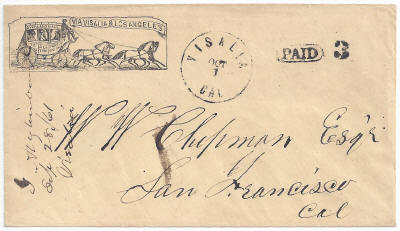 VIA VISALIA & LOS ANGELES
VISALIA
OCT
1
CAL
PAID 3
Sep 28/61
Visalia
W W Chapman Esqr
San Francisco
Cal